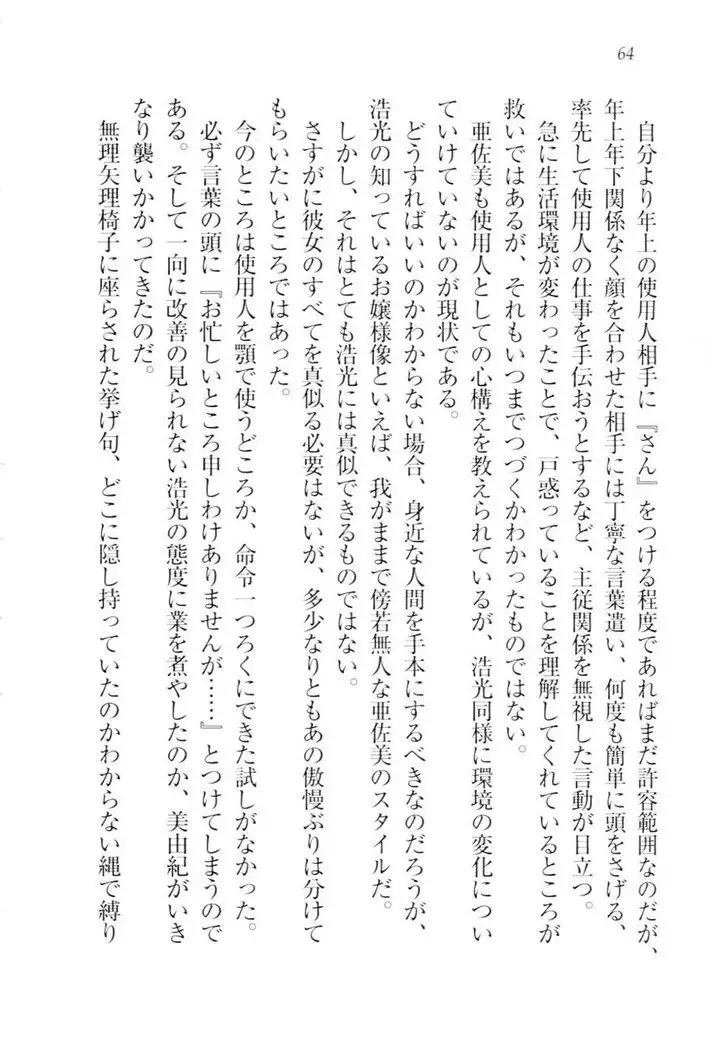 64
自分より年上の使用人相手に『さん』をつける程度であればまだ許容範囲なのだが、
年上年下関係なく顔を合わせた相手には丁寧な言葉遣い、何度も簡単に頭をさげる、
率先して使用人の仕事を手伝おうとするなど、主従関係を無視した言動が目立つ。
急に生活環境が変わったことで、戸惑っていることを理解してくれているところが
救いではあるが、それもいつまでつづくかわかったものではない。
亜佐美も使用人としての心構えを教えられているが、浩光同様に環境の変化につい
ていけていないのが現状である。
どうすればいいのかわからない場合、身近な人間を手本にするべきなのだろうが、
浩光の知っているお嬢様像といえば、我がままで傍若無人な亜佐美のスタイルだ。
しかし、それはとても浩光には真似できるものではない。
さすがに彼女のすべてを真似る必要はないが、多少なりともあの傲慢ぶりは分けて
もらいたいところではあった。
今のところは使用人を顎で使うどころか、命令一つろくにできた試しがなかった。
必ず言葉の頭に『お忙しいところ申しわけありませんが……』とつけてしまうので
ある。そして一向に改善の見られない浩光の態度に業を煮やしたのか、美由紀がいき
なり襲いかかってきたのだ。
無理矢理椅子に座らされた挙げ句、どこに隠し持っていたのかわからない縄で縛り